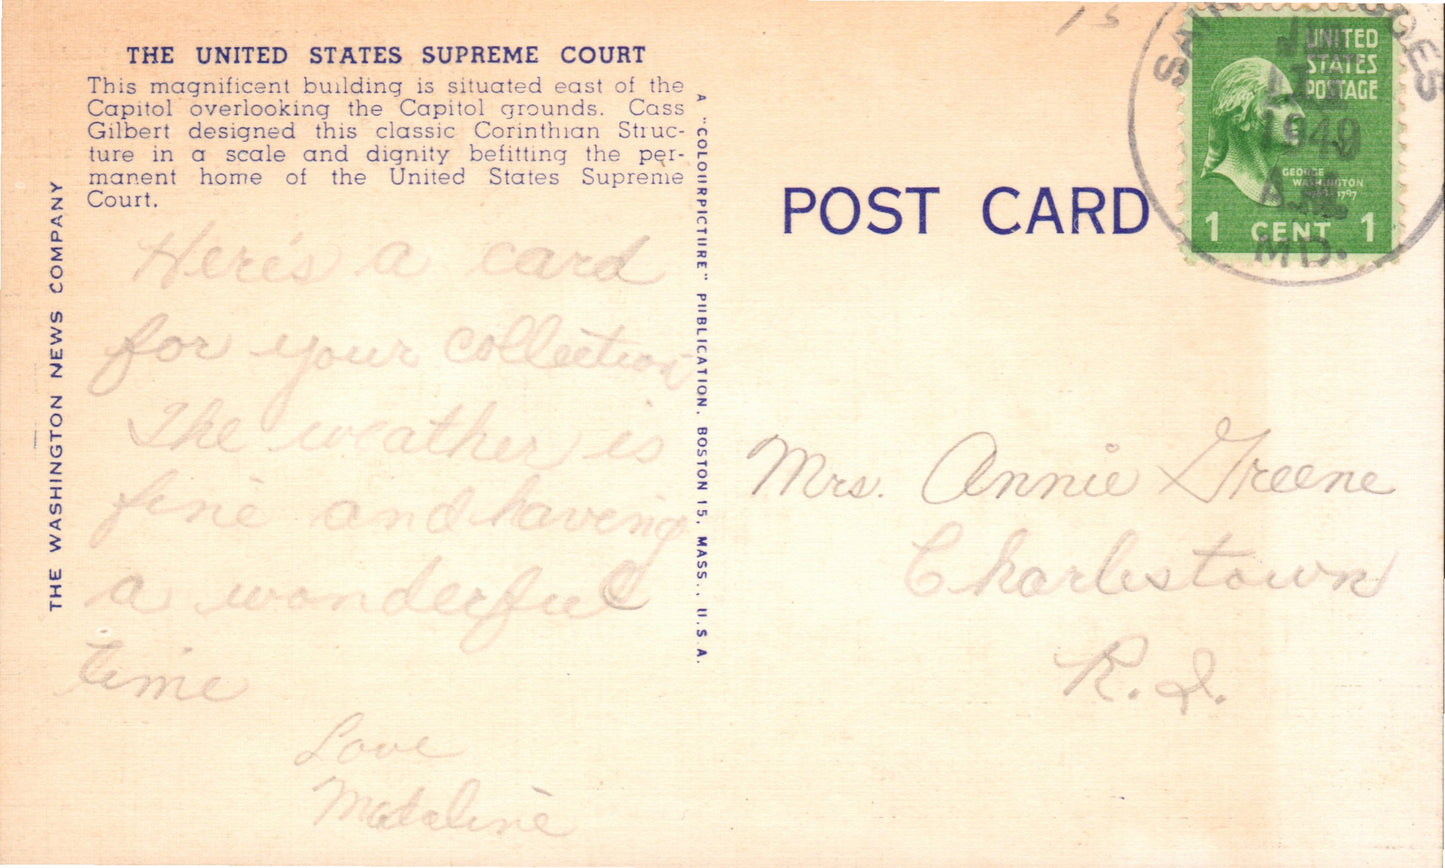 THE UNITED STATES SUPREME COURT
This magnificent building is situated east of the
Capitol overlooking the Capitol grounds. Cass
Gilbert designed this classic Corinthian Struc-
ture in a scale and dignity befitting the per-
manent home of the United States Supreme
Court.
Here's a card
for your collection
The weather is
fine and having
a wonderful
time
Love
Madaline
THE WASHINGTON NEWS COMPANY
A "COLOURPICTURE" PUBLICATION, BOSTON 15, MASS., U.S.A.
POST CARD
UNITED
STATES
POSTAGE
GEORGE
WASHINGTON
1 CENT 1
1949
MD.
Mrs. Annie Greene
Charlestown
R.I.